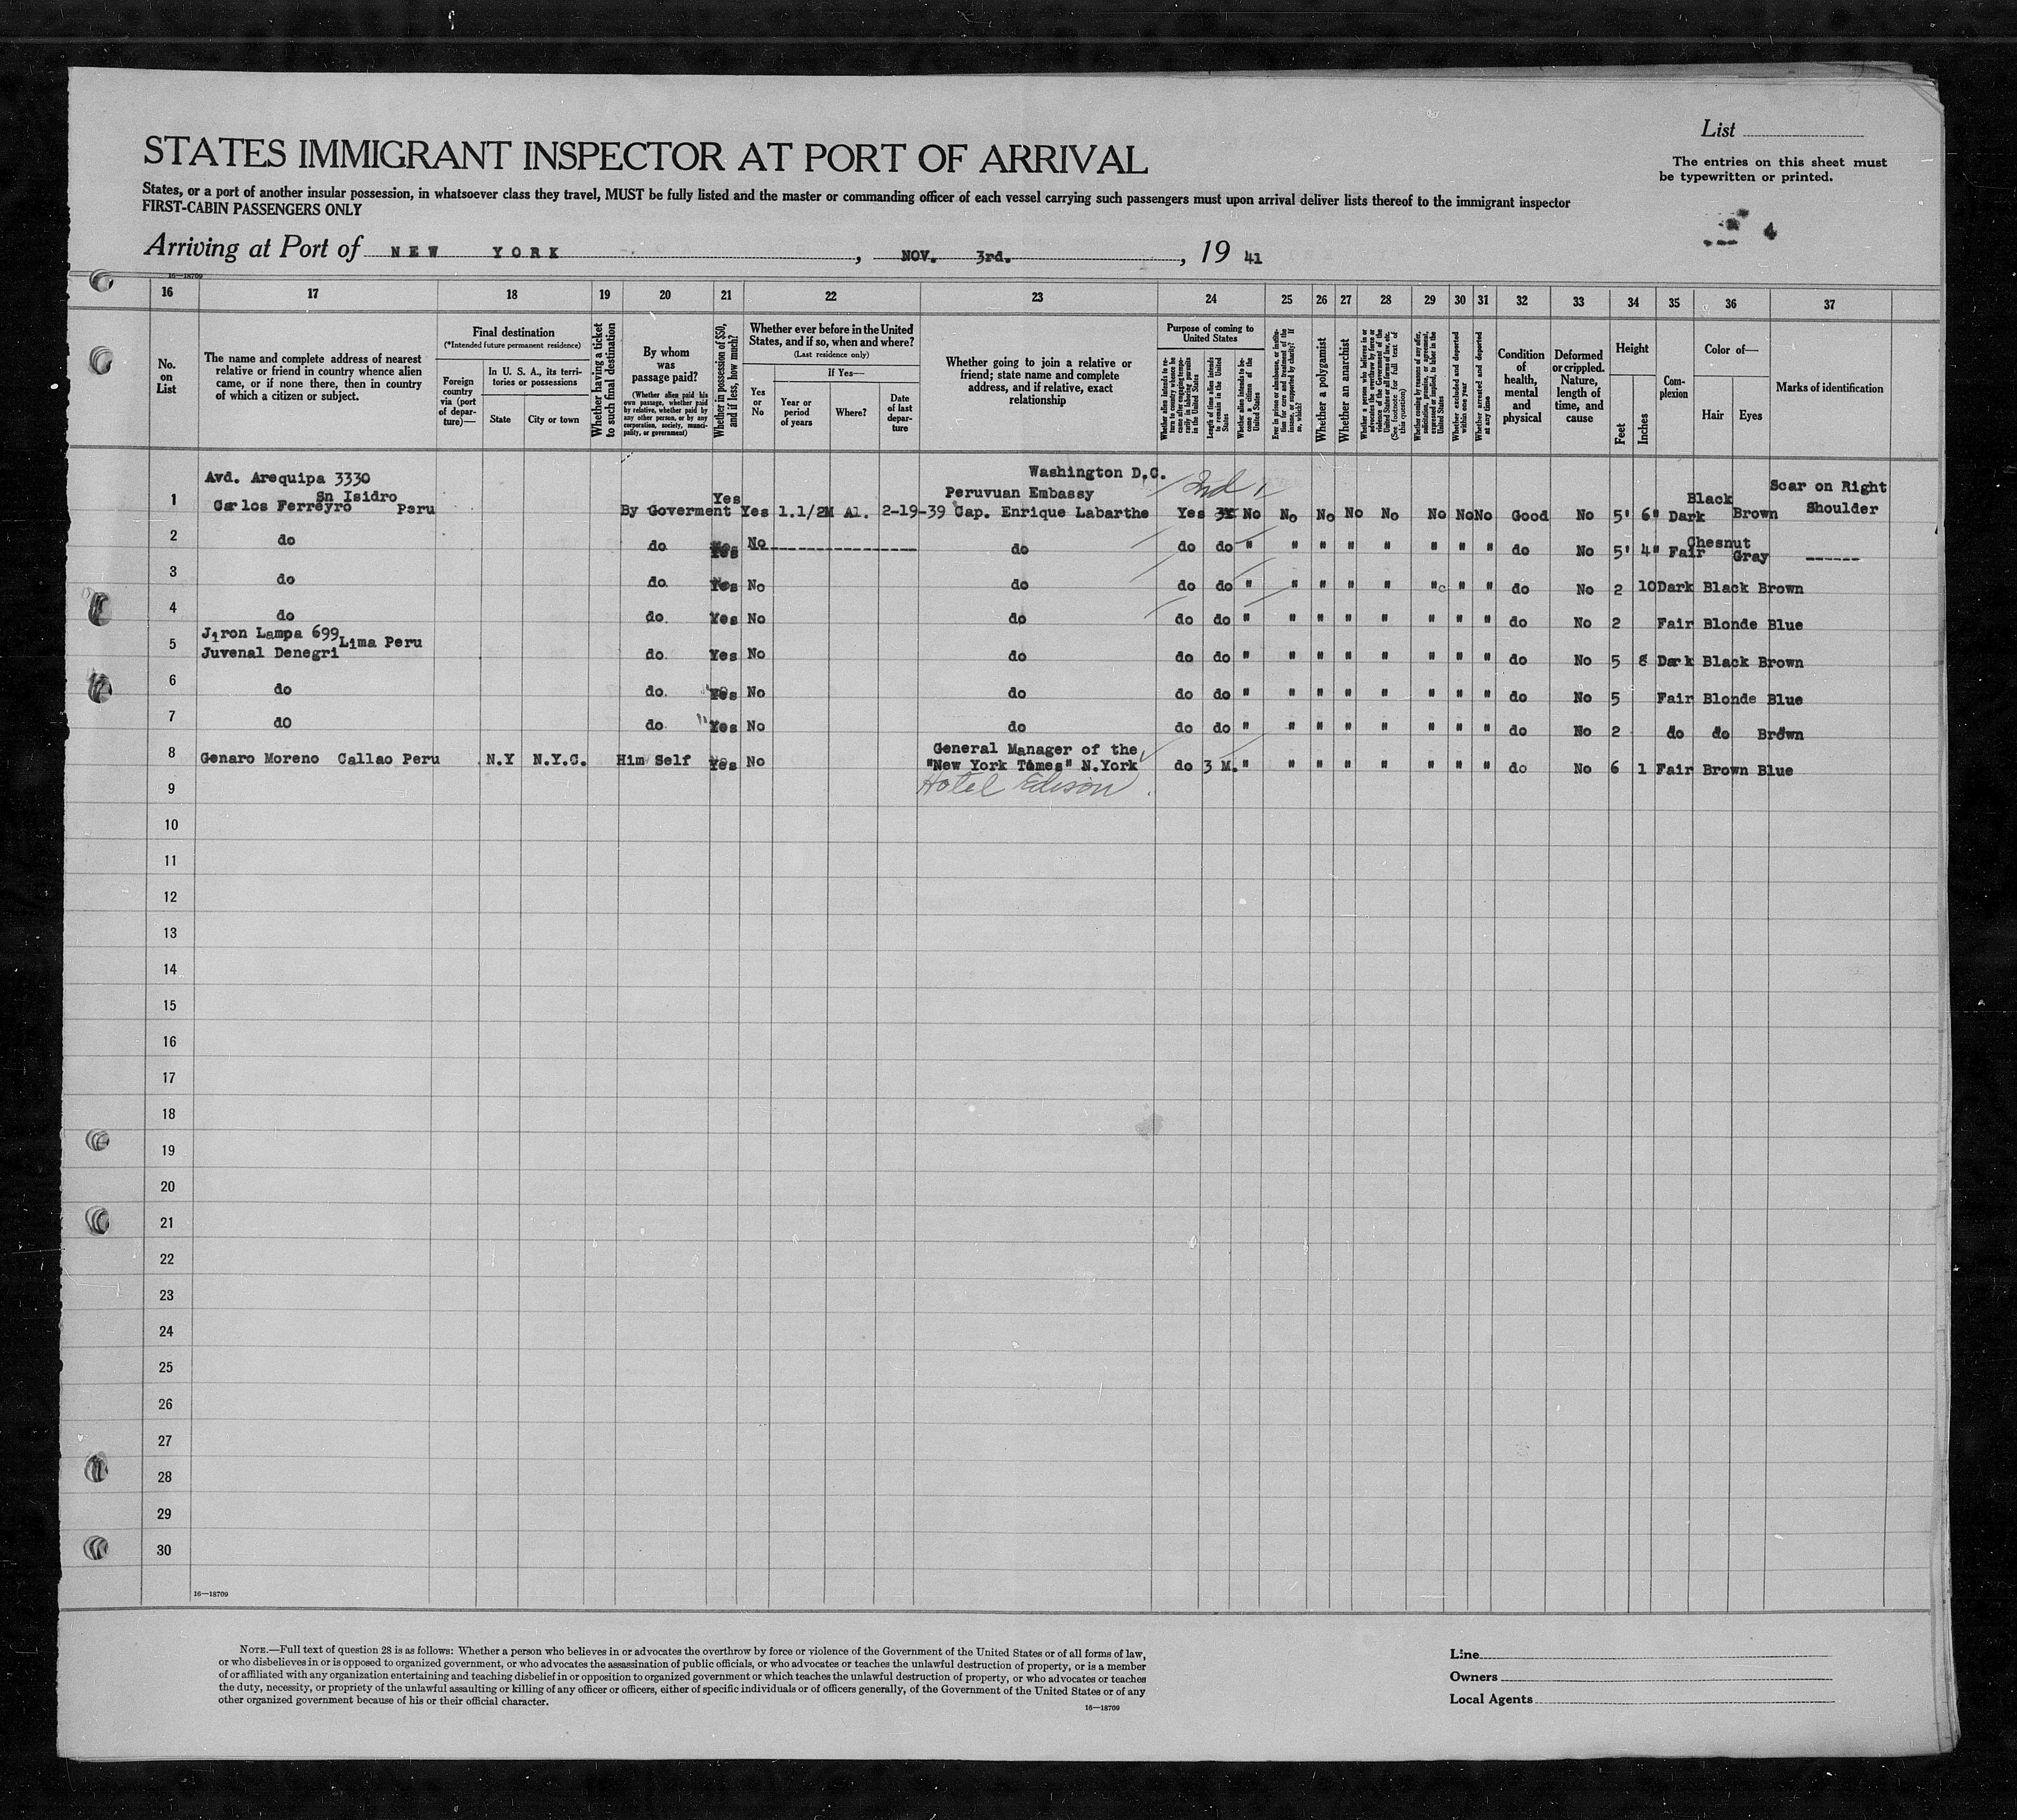 List
STATES IMMIGRANT INSPECTOR AT PORT OF ARRIVAL
The entries on this sheet must
be typewritten or printed.
States, or a port of another insular possession, in whatsoever class they travel, MUST be fully listed and the master or commanding officer of each vessel carrying such passengers must upon arrival deliver lists thereof to the immigrant inspector
FIRST-CABIN PASSENGERS ONLY
4
Arriving at Port of NEW YORK, NOV. 3rd., 19 41
16—18709
16 17 18 19 20 21 22 23 24 25 26 27 28 29 30 31 32 33 34 35 36 37
No. on List
The name and complete address of nearest relative or friend in country whence alien came, or if none there, then in country of which a citizen or subject.
Final destination
(*Intended future permanent residence)
Foreign country via (port of departure)—
In U. S. A., its territories or possessions
State
City or town
Whether having a ticket to such final destination
By whom was passage paid?
(Whether alien paid his own passage, whether paid by relative, whether paid by any other person, or by any corporation, society, municipality, or government)
Whether in possession of $50, and if less, how much?
Whether ever before in the United States, and if so, when and where?
(Last residence only)
Yes or No
If Yes—
Year or period of years
Where?
Date of last departure
Whether going to join a relative or friend; state name and complete address, and if relative, exact relationship
Purpose of coming to United States
Whether alien intends to return to country whence he came after engaging temporarily in laboring pursuits in the United States
Length of time alien intends to remain in the United States
Whether alien intends to become a citizen of the United States
Ever in prison or almshouse, or institution for care and treatment of the insane, or supported by charity? If so, which?
Whether a polygamist
Whether an anarchist
Whether a person who believes in or advocates the overthrow by force or violence of the Government of the United States or all forms of law, etc. (See footnote for full text of this question)
Whether coming by reason of any offer, solicitation, promise, or agreement, expressed or implied, to labor in the United States
Whether excluded and deported within one year
Whether arrested and deported at any time
Condition of health, mental and physical
Deformed or crippled. Nature, length of time, and cause
Height
Feet
Inches
Complexion
Color of—
Hair
Eyes
Marks of identification
Avd. Arequipa 3330 Washington D.C. 2nd
1 Sn Isidro Carlos Ferreyro Peru By Goverment Yes Yes 1.1/2M Al. 2-19-39 Peruvuan Embassy Cap. Enrique Labarthe Yes 3Y No No No No No No No No Good No 5' 6" Dark Black Brown Scar on Right Shoulder
2 do do Yes No do do do " " " " " " " " do No 5' 4" Fair Chesnut Gray ------
3 do do Yes No do do do " " " " " " " " do No 2 10 Dark Black Brown
4 do do Yes No do do do " " " " " " " " do No 2 Fair Blonde Blue
5 Jiron Lampa 699 Lima Peru Juvenal Denegri do Yes No do do do " " " " " " " " do No 5 8 Dark Black Brown
6 do do Yes No do do do " " " " " " " " do No 5 Fair Blonde Blue
7 dO do Yes No do do do " " " " " " " " do No 2 do do Brown
8 Genaro Moreno Callao Peru N.Y N.Y.C. Him Self Yes No General Manager of the "New York Times" N.York do 3 M. " " " " " " " " do No 6 1 Fair Brown Blue
9 Hotel Edison
10
11
12
13
14
15
16
17
18
19
20
21
22
23
24
25
26
27
28
29
30
16—18709
NOTE.—Full text of question 28 is as follows: Whether a person who believes in or advocates the overthrow by force or violence of the Government of the United States or of all forms of law,
or who disbelieves in or is opposed to organized government, or who advocates the assassination of public officials, or who advocates or teaches the unlawful destruction of property, or is a member
of or affiliated with any organization entertaining and teaching disbelief in or opposition to organized government or which teaches the unlawful destruction of property, or who advocates or teaches
the duty, necessity, or propriety of the unlawful assaulting or killing of any officer or officers, either of specific individuals or of officers generally, of the Government of the United States or of any
other organized government because of his or their official character.
16—18709
Line
Owners
Local Agents